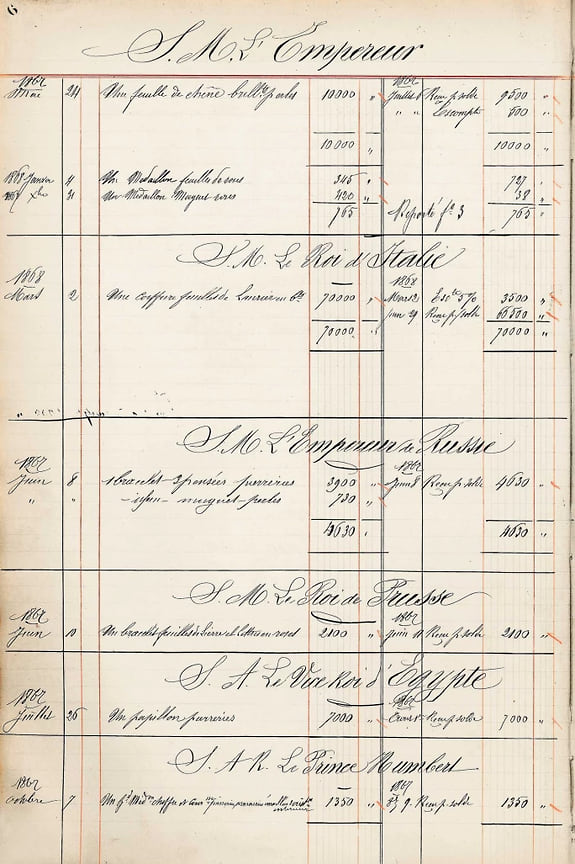 6
S. M. L'Empereur
1867
24 Une feuille de chêne brill. perles 10000 " Juillet Remp. solde 9500 "
" " Escompte 500 "
10000 " 10000 "
1868 Janvier 4 Un Médaillon feuilles de roses 345 " 727 "
31 Un Médaillon Muguet roses 420 " 38 "
765 " Reporté fo 3 765 "
S. M. Le Roi d'Italie
1868 1868
Mars 2 Une coiffure feuilles de Laurier 70000 " Mars 2 Escte 5% 3500 "
Juin 29 Remp. solde 66500 "
70000 " 70000 "
S. M. L'Empereur de Russie
1867 1867
Juin 8 1 bracelet 3 pensées pierreries 3900 " Juin 8 Remp. solde 4630 "
" " muguet perles 730 "
4630 " 4630 "
S. M. Le Roi de Prusse
1867 1867
Juin 10 Un bracelet feuilles de lierre et roses 2100 " Juin 11 Remp. solde 2100 "
S. A. Le Vice Roi d'Egypte
1867 1867
Juillet 26 Un papillon pierreries 7000 " Remp. solde 7000 "
S. A. R. Le Prince Humbert
1867 1867
Octobre 7 Un 1350 " 9 Remp. solde 1350 "